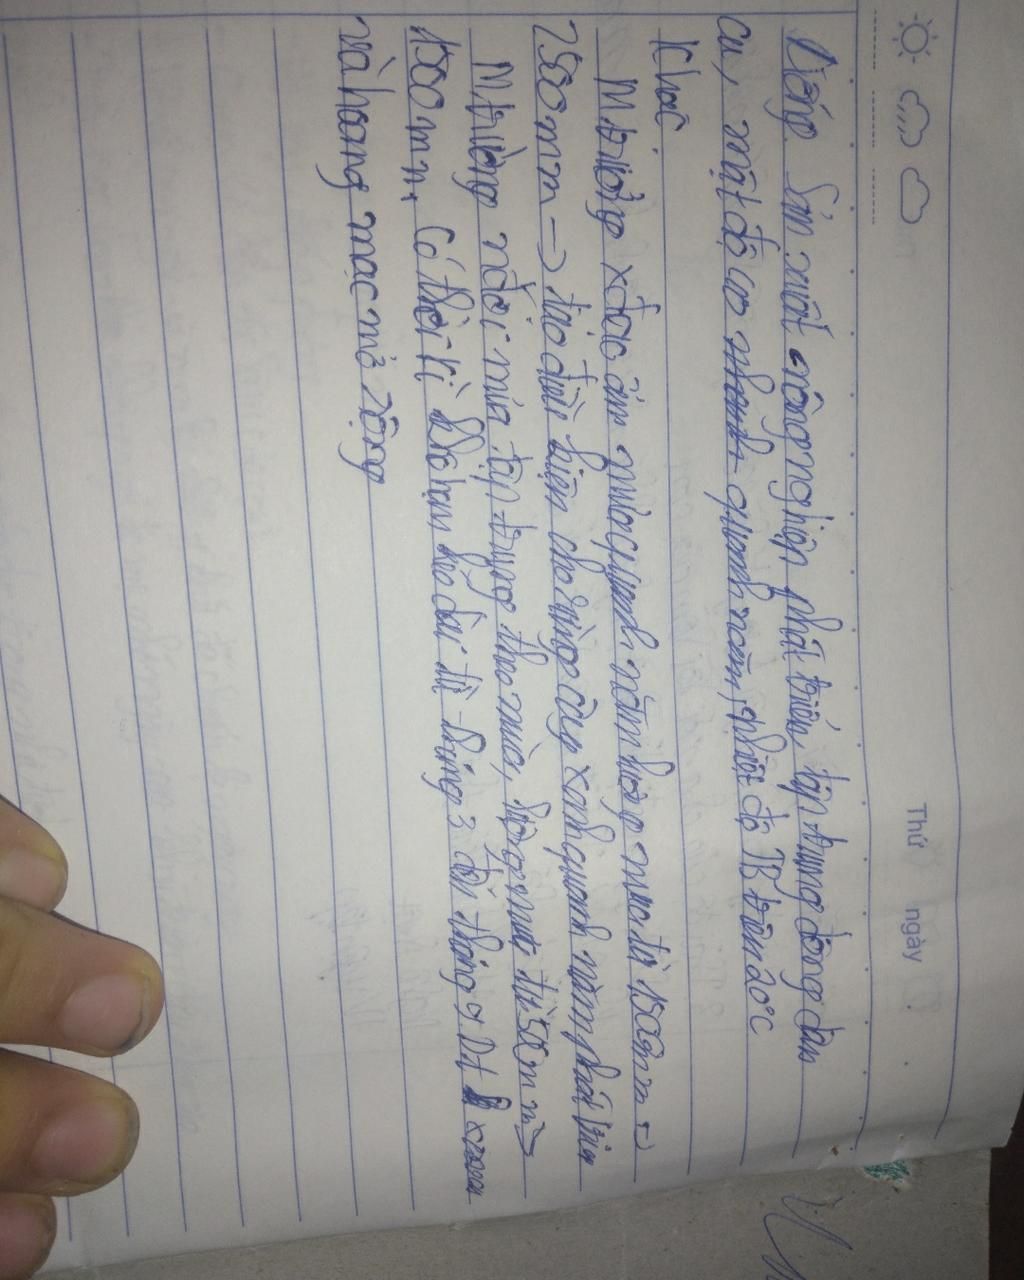 Thứ ngày
Giống: Sản xuất nông nghiệp phát triển, tập trung đông dân
cư, mật độ cao nhanh quanh năm, nhiệt độ TB trên 20°C
Khác
M trường xđạo ẩm mưa quanh năm lượng mưa từ 1500mm →
2500mm → tạo điều kiện cho rừng rậm xanh quanh năm phát triển
M trường nđới: mưa tập trung theo mùa, lượng mưa từ 500mm →
1500mm, Có thời kì khô hạn kéo dài từ tháng 3 đến tháng 9 Dt xavan
và hoang mạc mở rộng